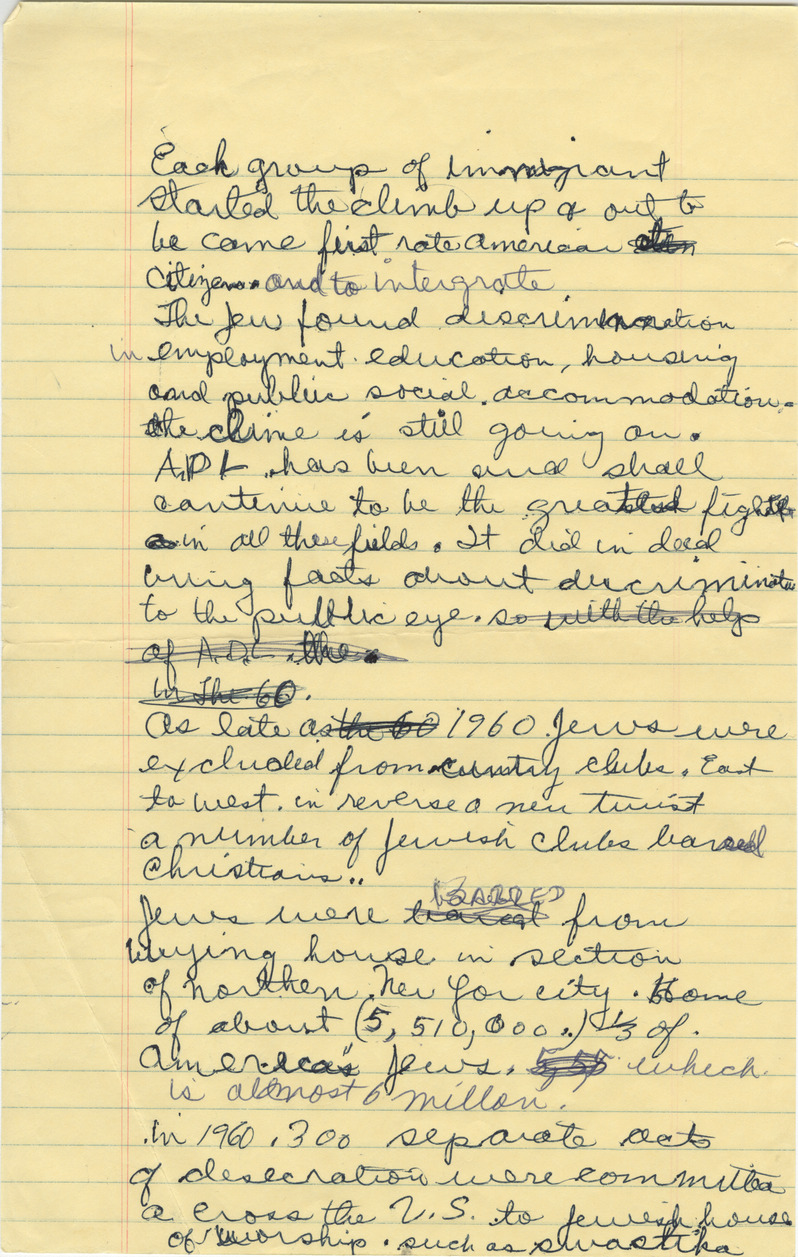 Each group of immigrant
started the climb up & out to
be come first rate American
Citizens. and to intergrate
The Jew found discrimination
in employment. education, housing
and public social. accommodation.
the clime is still going on.
A.D.L. has been and shall
continue to be the greatest fighter
in all these fields. It did in deed
bring facts about discriminate
to the public eye. so with the help
of A.D.L. the.
In The 60.
As late as the 60 1960 Jews were
excluded from country clubs. East
to west. in reverse a new twist
a number of Jewish clubs bared
Christians..
Jews were BARRED from
buying house in section
of northen. New Yor city. Home
of about (5,510,000.) 1/3 of.
America's Jews. which.
is almost 6 millon.
in 1960. 300 separate acts
of desecration were committed
a cross the U.S. to Jewish house
of worship. such as swastika